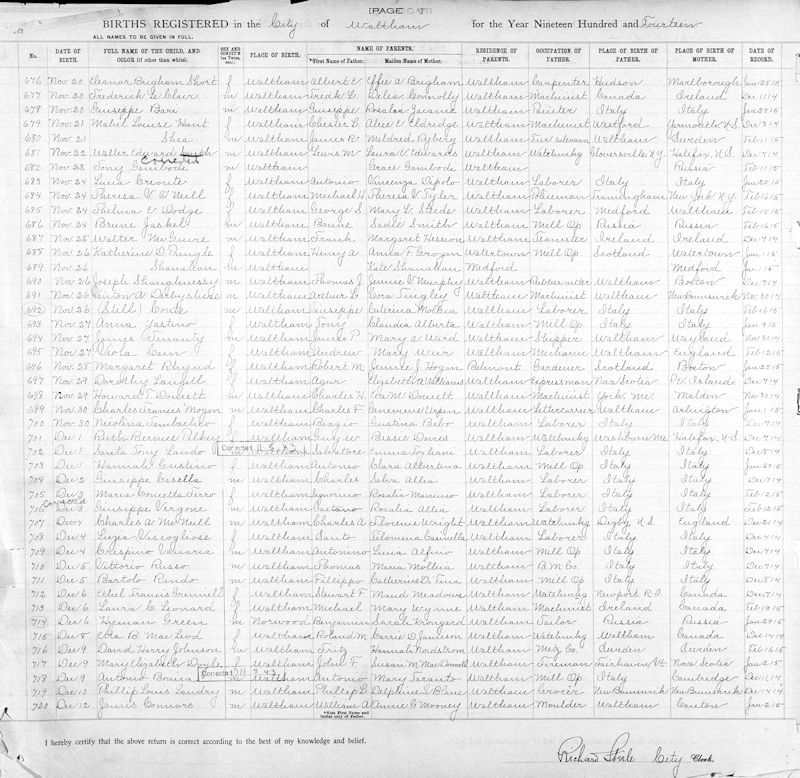 BIRTHS REGISTERED in the City of Waltham for the Year Nineteen Hundred and Fourteen
ALL NAMES TO BE GIVEN IN FULL.
No. DATE OF BIRTH. FULL NAME OF THE CHILD, AND COLOR (if other than white). PLACE OF BIRTH. NAME OF PARENTS. First Name of Father. Maiden Name of Mother. RESIDENCE OF PARENTS. OCCUPATION OF FATHER. PLACE OF BIRTH OF FATHER. PLACE OF BIRTH OF MOTHER. DATE OF RECORD.
676 Nov. 20 Eleanor Brigham Short f Waltham Albert Effie A Brigham Waltham Carpenter Hudson Marlborough Jan 25 15
677 Nov 20 Frederick G. Clair m Waltham Fredk G Delia Connolly Waltham Machinist Canada Ireland Dec 11 14
678 Nov 20 Giuseppe Bari m Waltham Giuseppe Rosalia Waltham Italy Italy Jan 29 15
679 Nov 21 Mabel Louise Hunt f Waltham Chester L Alice E Eldridge Waltham Machinist Westford Yarmouth N.S. Dec 8 14
680 Nov 21 Shea Waltham James R. Mildred Ryberg Waltham Waltham Sweden Feb 11 15
681 Nov 22 Walter Edward m Waltham Lewis M Laura E Edwards Waltham Watchmkg Gloversville N.Y. Halifax, N.S. Dec 7 14
Correct
682 Nov 23 Tony Gambode m Waltham Grace Gambode Waltham Russia Feb 11 15
683 Nov 24 Lucia Waltham Antonio Waltham Laborer Italy Italy Jan 25 15
684 Nov 24 Theresa V O'Neill f Waltham Michael H Theresa V Tyler Waltham Policeman Framingham New York N.Y. Feb 16 15
685 Nov 24 Thelma E Dodge f Waltham George S Mary G Steede Waltham Laborer Medford Waltham Feb 15 15
686 Nov 24 Brune Jaskel m Waltham Brune Sadie Smith Waltham Mill Op Russia Russia Feb 16 15
687 Nov 25 Walter McGuire m Waltham Frank Margaret Hession Waltham Teamster Ireland Ireland Dec 7 14
688 Nov 26 Katherine D Pringle f Waltham Henry A Anna F Grogan Watertown Mill Op Scotland Watertown Jan 1 15
689 Nov 26 Shanahan Waltham Kate Shanahan Medford Medford Jan 1 15
690 Nov 26 Joseph Shaughnessy m Waltham Thomas J Jennie V Murphy Waltham Rubber cutter Waltham Boston Dec 7 14
691 Nov 26 Vinton A Derbyshire m Waltham Arthur G Cora Tingley Waltham Machinist Waltham New Brunswick Nov 30 14
692 Nov 26 (Still) Conte m Waltham Giuseppe Caterina Mollica Waltham Laborer Italy Italy Feb 16 15
693 Nov 27 Anna Yastino f Waltham Tony Claudia Alberta Waltham Mill Op Italy Italy Jan 2 15
694 Nov 27 James Finanty m Waltham James P. Mary A Ward Waltham Shipper Waltham Wayland Nov 30 14
695 Nov 27 Viola Cain f Waltham Andrew Mary Weir Waltham Mechanic Waltham England Feb 12 15
696 Nov 28 Margaret Rhynd f Waltham Robert M Jennie J Hogan Belmont Gardener Scotland Boston Jan 25 15
697 Nov 29 Dorothy Langill f Waltham Agur Elizabeth A Williams Waltham Expressman Nova Scotia Pr Island Dec 7 14
698 Nov 29 Howard T Doucett m Waltham Charles H Eva M Doucett Waltham Machinist York Me Malden Nov 30 14
699 Nov. 30 Charles Francis Mogan m Waltham Charles F Genevieve Waltham Letter carrier Waltham Arlington Jan 1 15
700 Nov 30 Nicolina f Waltham Biagio Gustina Bibo Waltham Laborer Italy Italy Dec 7 14
701 Dec 1 Ruth Bernice Pilkey f Waltham Guy W Bessie Davis Waltham Watchmkg Washburn Me Halifax, N.S. Dec 7 14
702 Dec 1 Santa Tony Laudo Corrected 11 5 42 Waltham Salvatore Emma Waltham Laborer Italy Italy Dec 8 14
703 Dec 1 Hannah Gustino f Waltham Antonio Clara Albertina Waltham Mill Op Italy Italy Jan 29 15
704 Dec 2 Giuseppe Casella m Waltham Charles Silva Allia Waltham Laborer Italy Italy Dec 7 14
705 Dec 3 Maria Concetta Ferro f Waltham Rosalia Waltham Laborer Italy Italy Feb 12 15
Corrected
706 Dec 3 Giuseppe Vergone m Waltham Gaetano Rosalia Allia Waltham Laborer Italy Italy Feb 12 15
707 Dec 4 Charles A McNeill m Waltham Charles A Florence Wright Waltham Watchmkg Digby N.S. England Dec 21 14
708 Dec 4 Luzia Viscogliose f Waltham Santo Filomena Casinella Waltham Laborer Italy Italy Dec 7 14
709 Dec 4 Crespino Vanaria m Waltham Antonino Lucia Alfino Waltham Mill Op Italy Italy Dec 7 14
710 Dec 5 Vittorio Russo m Waltham Thomas Maria Mollica Waltham B.M. Co. Italy Italy Dec 7 14
711 Dec 5 Bartolo Rando m Waltham Fillippo Catherine Di Fina Waltham Mill Op Italy Italy Dec 8 14
712 Dec 6 Ethel Francis Grinnell f Waltham Stewart F Maud Meadows Waltham Watchmkg Newport R.I. Canada Dec 7 14
713 Dec 6 Laura C Leonard f Waltham Michael Mary Wynne Waltham Machinist Ireland Canada Feb 19 15
714 Dec 6 Hyman Green m Norwood Benjamin Sarah Waltham Tailor Russia Russia Jan 29 15
715 Dec 8 Ora B MacLeod f Waltham Roland M Carrie D Jamieson Waltham Watchmkg Waltham Canada Dec 14 14
716 Dec 9 David Harry Johnson m Waltham Fritz Hannah Nordstrom Waltham Metz Co. Sweden Sweden Feb 16 15
717 Dec 9 Mary Elizabeth Doyle f Waltham John F Susan M MacDonnell Waltham Foreman Fairhaven Vt. Nova Scotia Jan 2 15
718 Dec 9 Antonio Corrected 11 Waltham Antonio Mary Taranto Waltham Mill Op Italy Cambridge Dec 11 14
719 Dec 10 Phillip Louis Landry m Waltham Phillip L Delphine L Blanc Waltham Grocer New Brunswick New Brunswick Dec 14 14
720 Dec 12 James Connors m Waltham William A Annie G Mooney Waltham Moulder Waltham Canton Jan 2 15
*Note First Name and Initial only of Father.
I hereby certify that the above return is correct according to the best of my knowledge and belief.
Richard Steele City Clerk.